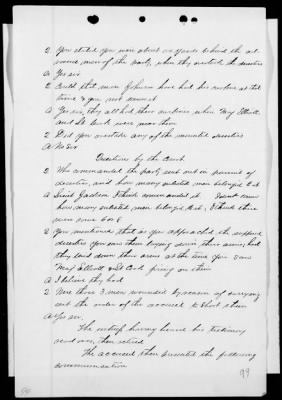 Q You stated you were about 200 yards behind the ad-
vanced men of the party, when they overtook the deserters
A Yes sir
Q Could that man Johnson have had his carbine at that
time & you not seen it
A Yes sir, they all had their carbines when Maj Elliott
and Lt Cook were near them
Q Did you overtake any of the mounted deserters
A No Sir
Questions by the Court
Q Who commanded the party sent out in pursuit of
deserters, and how many enlisted men belonged to it
A Lieut Jackson I think commanded it. I dont know
how many enlisted men belonged to it, I think there
were some 6 or 8
Q You mentioned that as you approached the supposed
deserters you saw them laying down their arms, had
they laid down their arms at the time you saw
Maj Elliott & Lt Cook firing on them
A I believe they had
Q Were those 3 men wounded by reason of carrying
out the order of the accused to shoot them
A Yes sir.
The witness having heard his testimony
read over, then retired
The accused then presented the following
communication
99